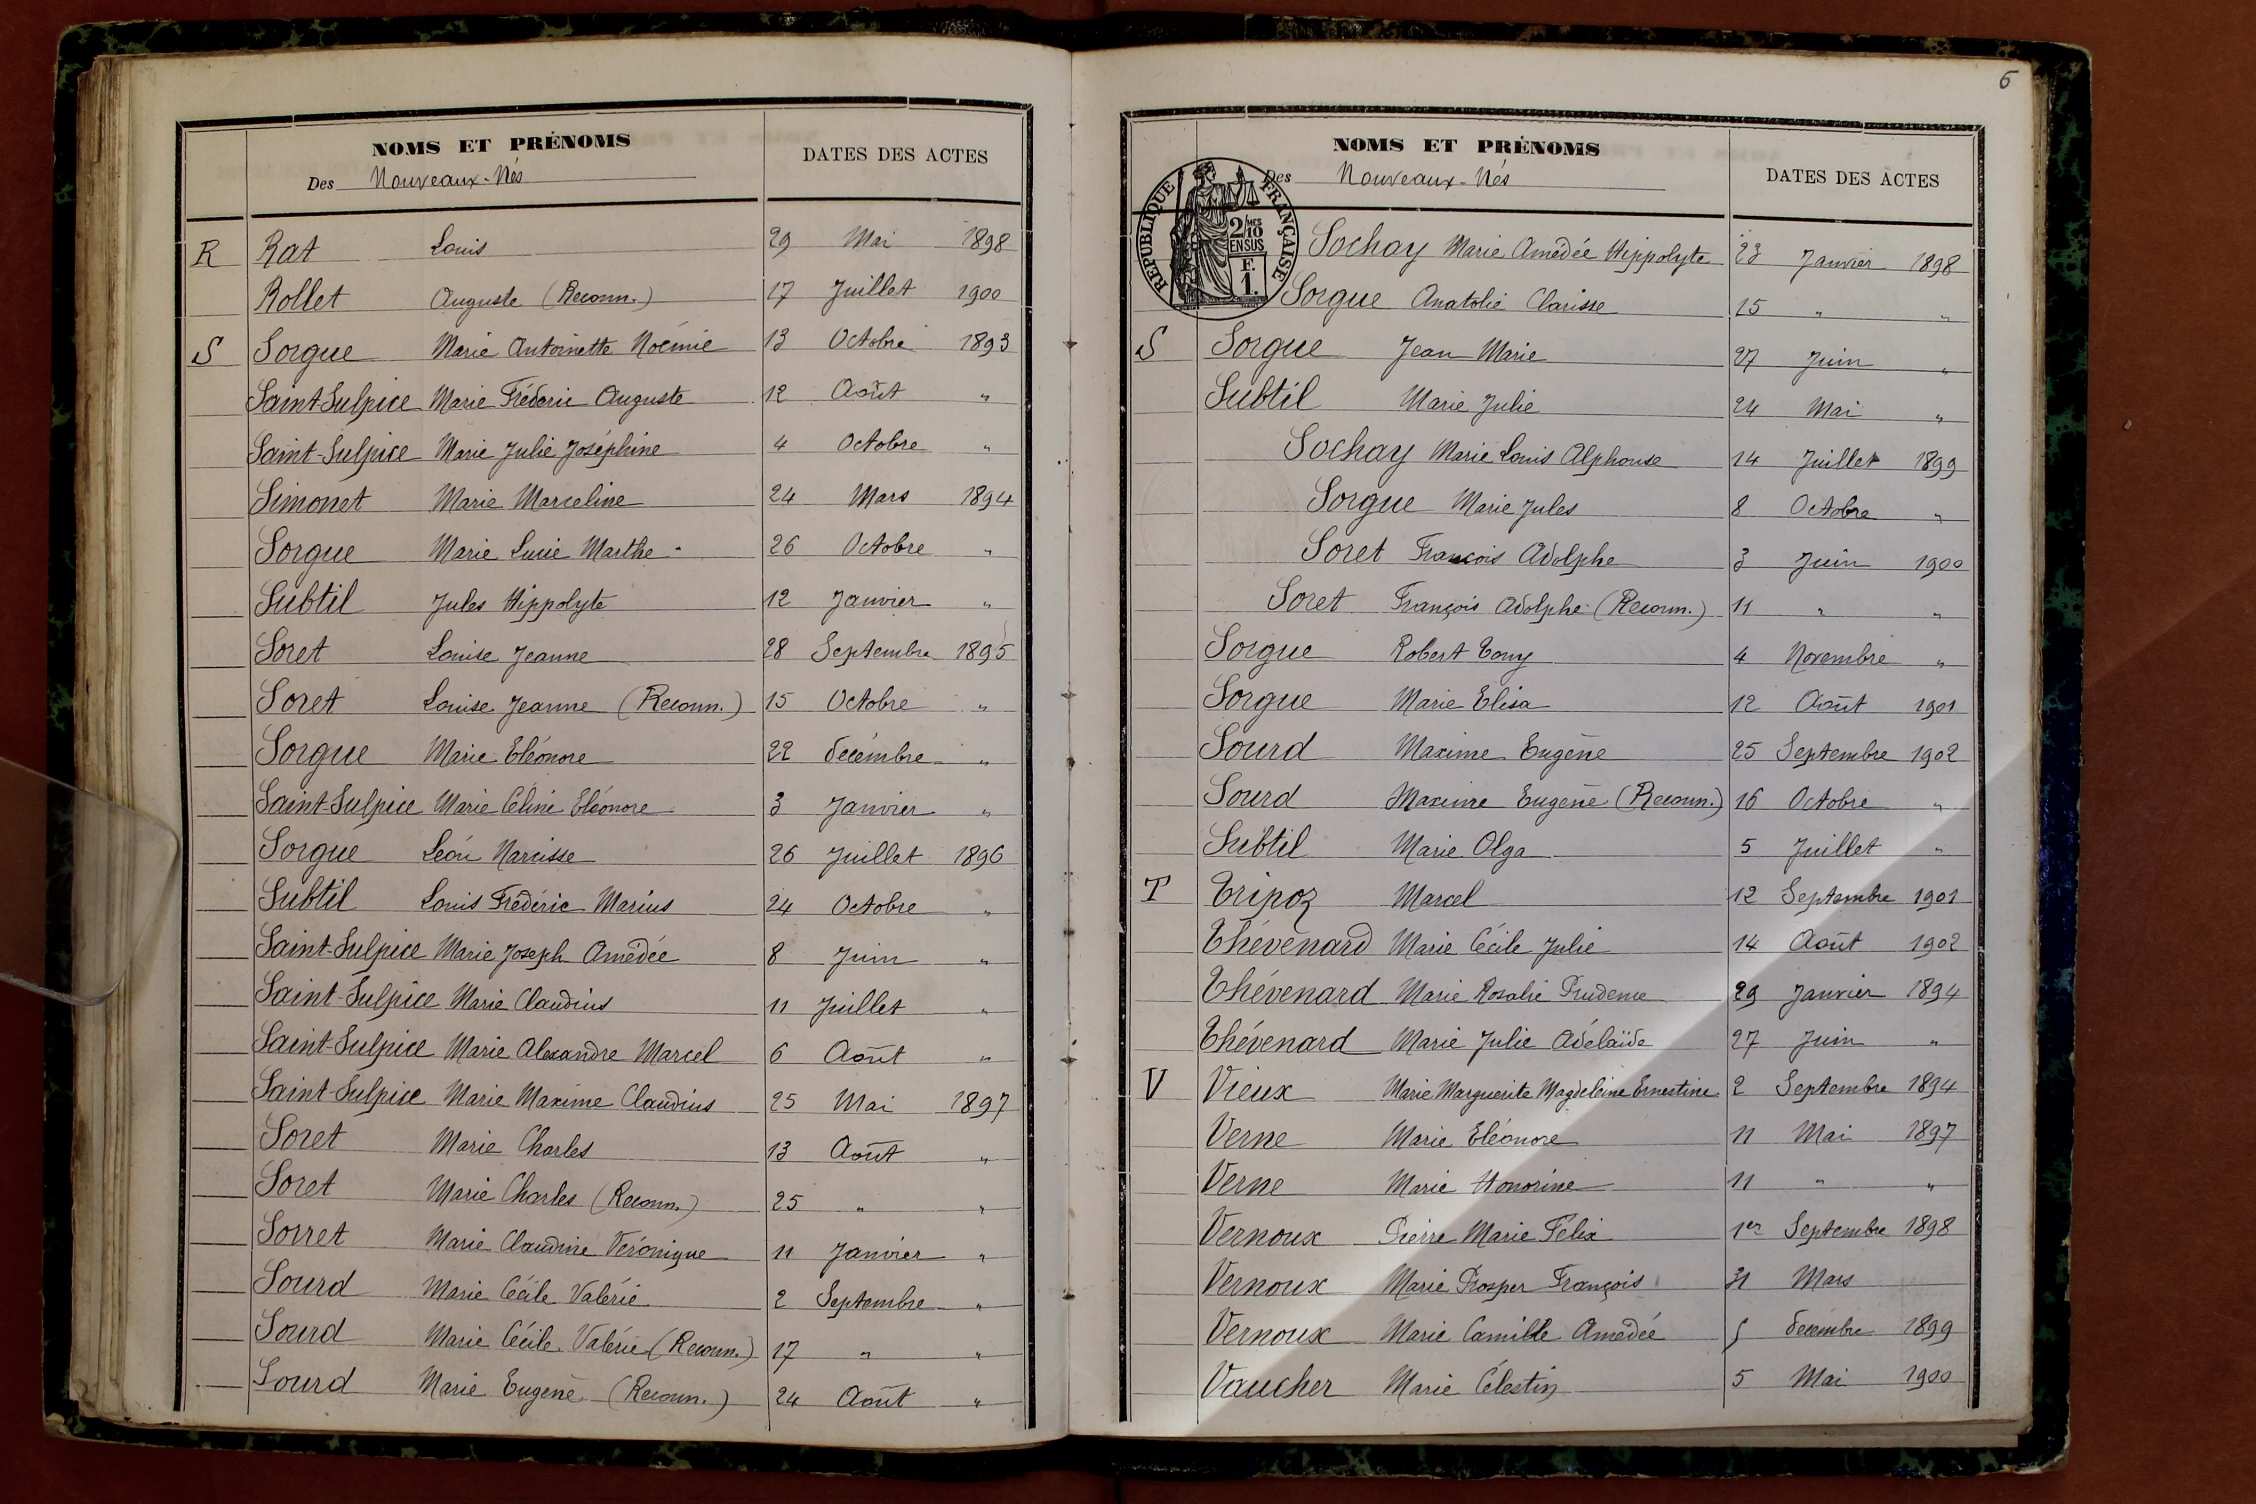 NOMS ET PRÉNOMS
DATES DES ACTES
Des Nouveaux-Nés
R Rat Louis 29 Mai 1898
Rollet Auguste (Reconn.) 17 Juillet 1900
S Sorgue Marie Antoinette Noémie 13 Octobre 1893
Saint-Sulpice Marie Fréderic Auguste 12 Août "
Saint-Sulpice Marie Julie Joséphine 4 Octobre "
Simonet Marie Marceline 24 Mars 1894
Sorgue Marie Lucie Marthe 26 Octobre "
Subtil Jules Hippolyte 12 Janvier "
Soret Louise Jeanne 28 Septembre 1895
Soret Louise Jeanne (Reconn.) 15 Octobre "
Sorgue Marie Eléonore 22 décembre "
Saint-Sulpice Marie Céline Eléonore 3 Janvier "
Sorgue Léon Narcisse 26 Juillet 1896
Subtil Louis Frédéric Marius 24 Octobre "
Saint-Sulpice Marie Joseph Amédée 8 Juin "
Saint-Sulpice Marie Claudius 11 Juillet "
Saint-Sulpice Marie Alexandre Marcel 6 Août "
Saint-Sulpice Marie Maxime Claudius 25 Mai 1897
Soret Marie Charles 13 Août "
Soret Marie Charles (Reconn.) 25 " "
Sorret Marie Claudine Véronique 11 Janvier "
Sourd Marie Cécile Valérie 2 Septembre "
Sourd Marie Cécile Valérie (Reconn.) 17 " "
Sourd Marie Eugène (Reconn.) 24 Août "
6
NOMS ET PRÉNOMS
DATES DES ACTES
Des Nouveaux-Nés
RÉPUBLIQUE FRANÇAISE
2/10 MES
EN SUS
F.
1.
Sochay Marie Amédée Hippolyte 23 Janvier 1898
Sorgue Anatolie Clarisse 15 " "
S Sorgue Jean Marie 27 Juin "
Subtil Marie Julie 24 Mai "
Sochay Marie Louis Alphonse 14 Juillet 1899
Sorgue Marie Jules 8 Octobre "
Soret François Adolphe 3 Juin 1900
Soret François Adolphe (Reconn.) 11 " "
Sorgue Robert Tony 4 Novembre "
Sorgue Marie Elisa 12 Août 1901
Sourd Maxime Eugène 25 Septembre 1902
Sourd Maxime Eugène (Reconn.) 16 Octobre "
Subtil Marie Olga 5 Juillet "
T Tripoz Marcel 12 Septembre 1901
Thévenard Marie Cécile Julie 14 Août 1902
Thévenard Marie Rosalie Prudence 29 Janvier 1894
Thévenard Marie Julie Adélaïde 27 Juin "
V Vieux Marie Marguerite Magdeleine Ernestine 2 Septembre 1894
Verne Marie Eléonore 11 Mai 1897
Verne Marie Honorine 11 " "
Vernoux Pierre Marie Félix 1er Septembre 1898
Vernoux Marie Prosper François 31 Mars
Vernoux Marie Camille Amédée 5 décembre 1899
Vaucher Marie Célestin 5 Mai 1900